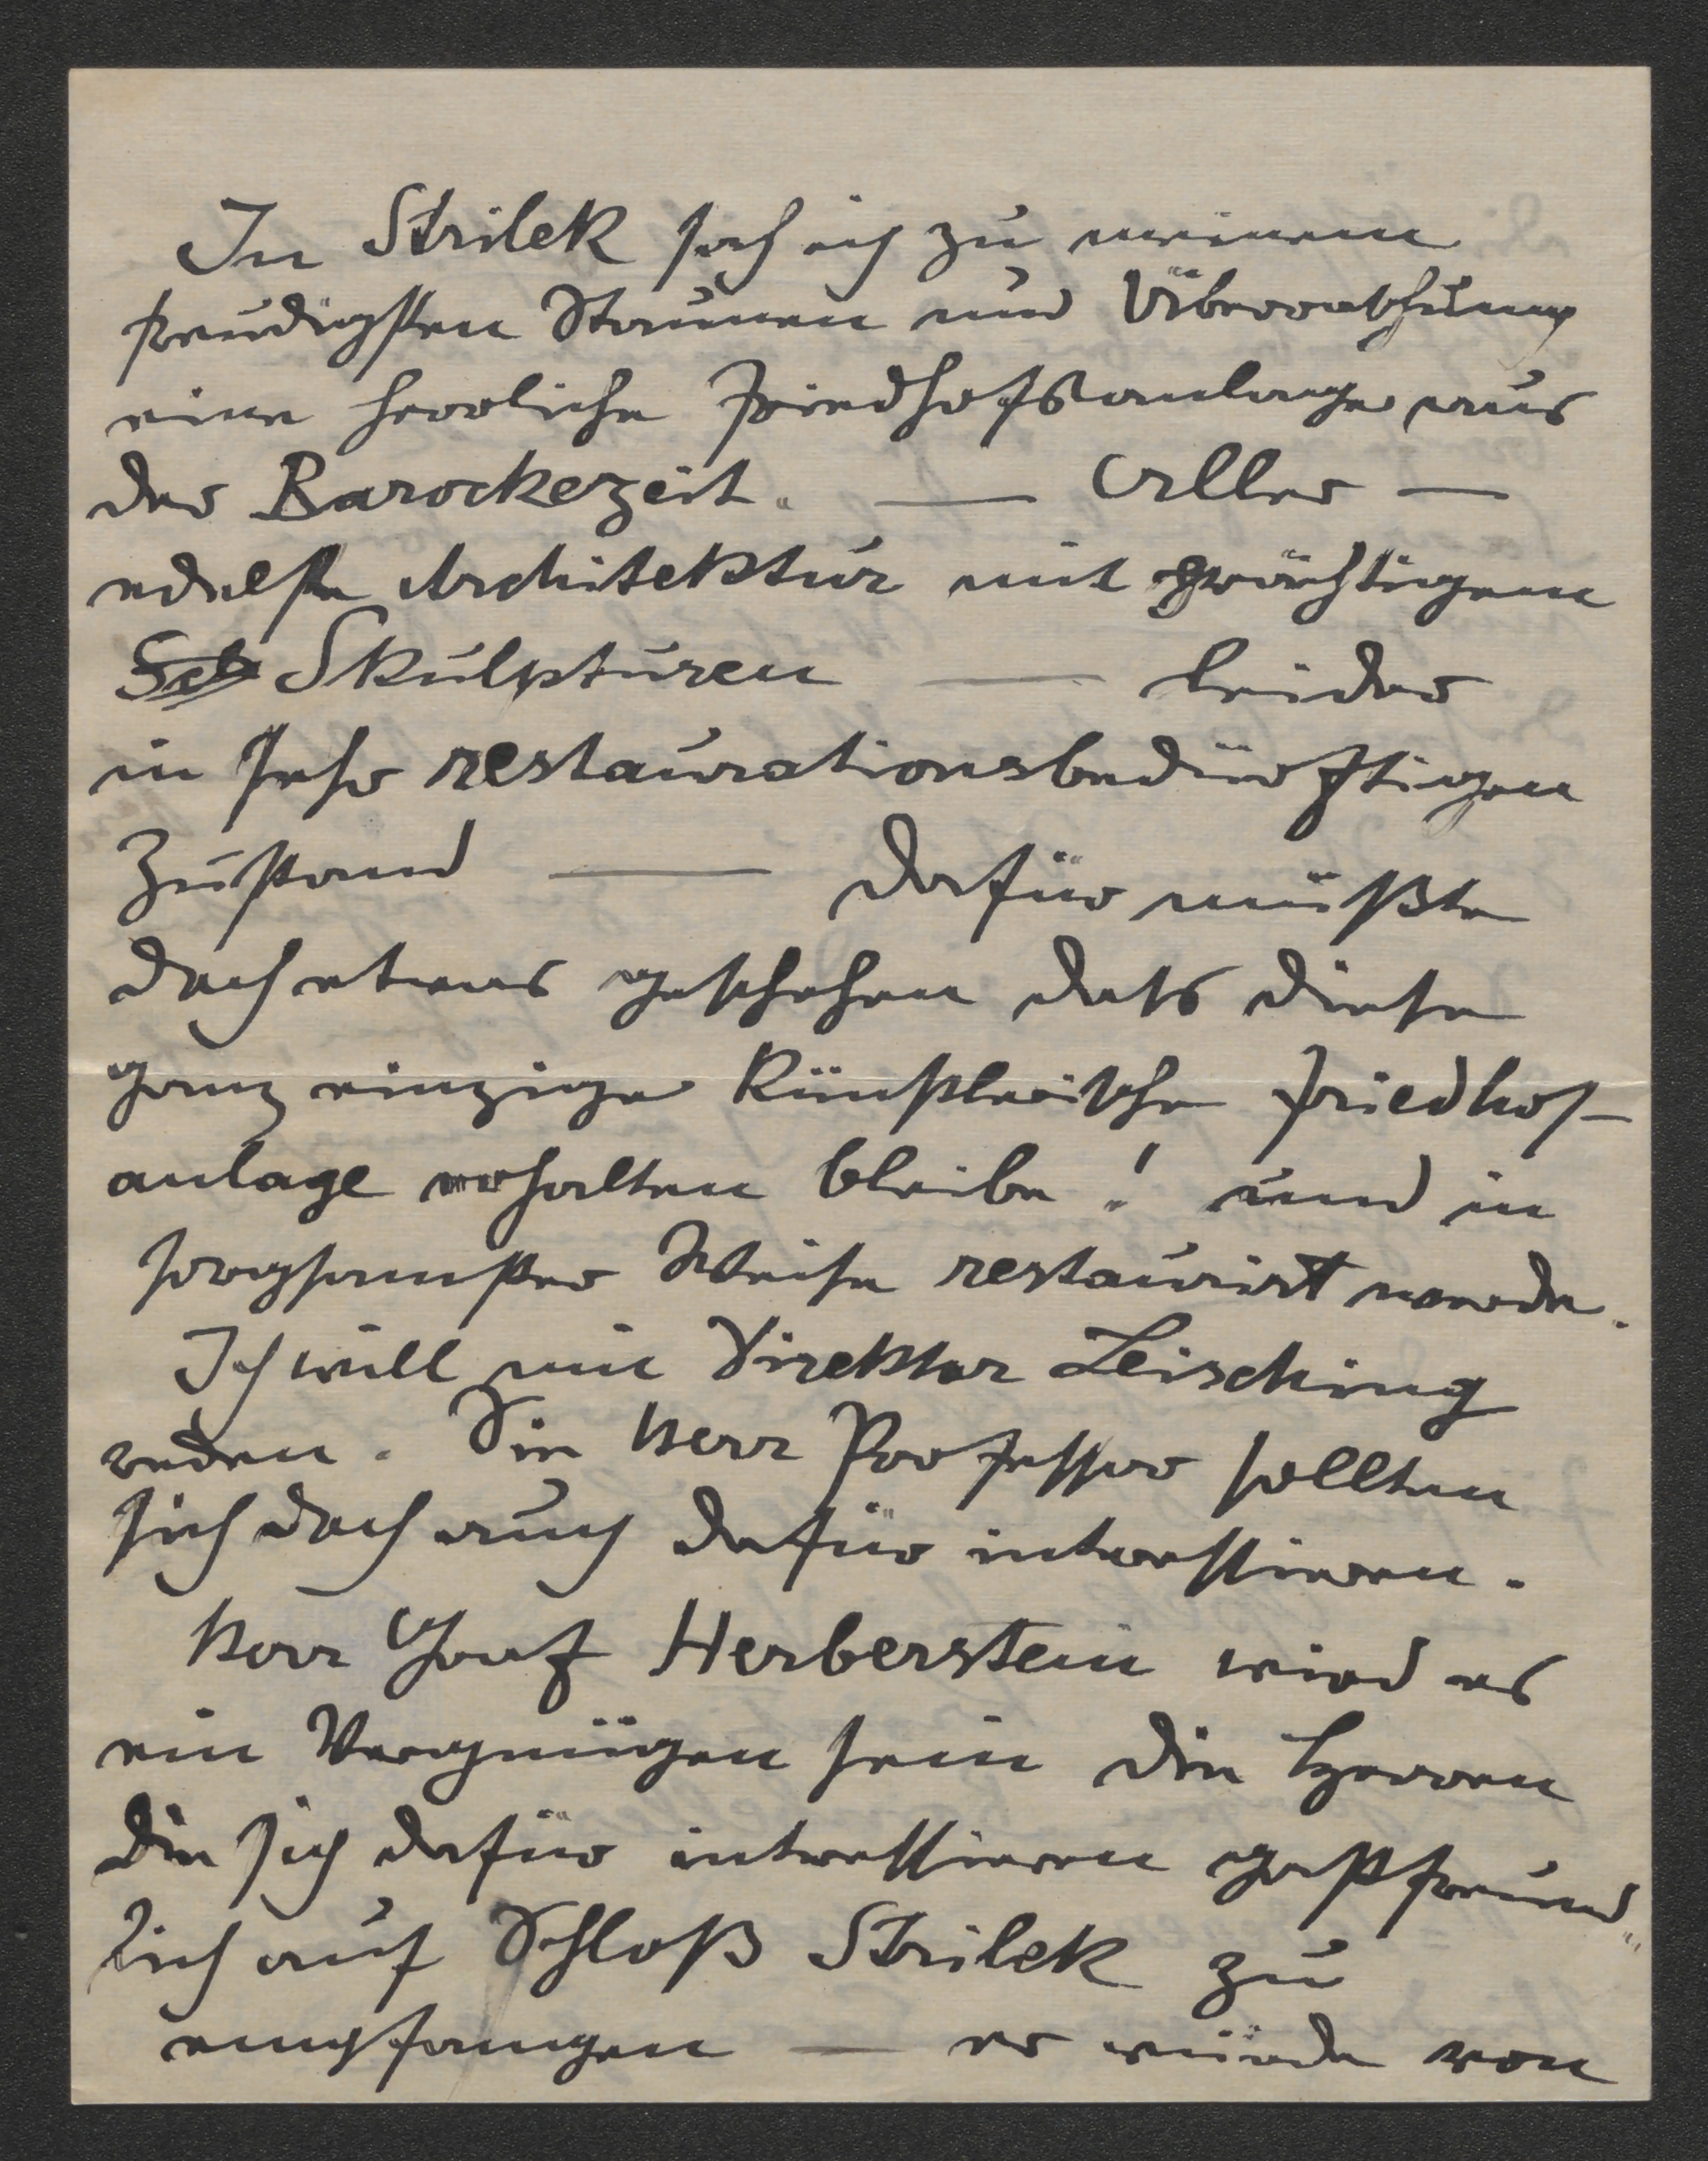 In Strilek sah ich zu meinem
freudigsten Staunen und Überraschung
eine herrliche Friedhofsanlage aus
der Barockezeit. — Alles —
edelste Architektur mit prächtigen
Sch Skulpturen — leider
in sehr restaurationsbedürftigen
Zustand — dafür müßte
doch etwas geschehen dass diese
ganz einzige künstlerische Friedhof-
anlage erhalten bleibe! und in
sorgsamster Weise restaurirt werde.
Ich will mit Direktor Leisching
reden. Sie Herr Professor sollten
sich doch auch dafür interessieren.
Herr Graf Herberstein wird es
ein Vergnügen sein die Herren
die sich dafür interessieren gastfreund„
lich auf Schloß Strilek zu
empfangen — er würde von